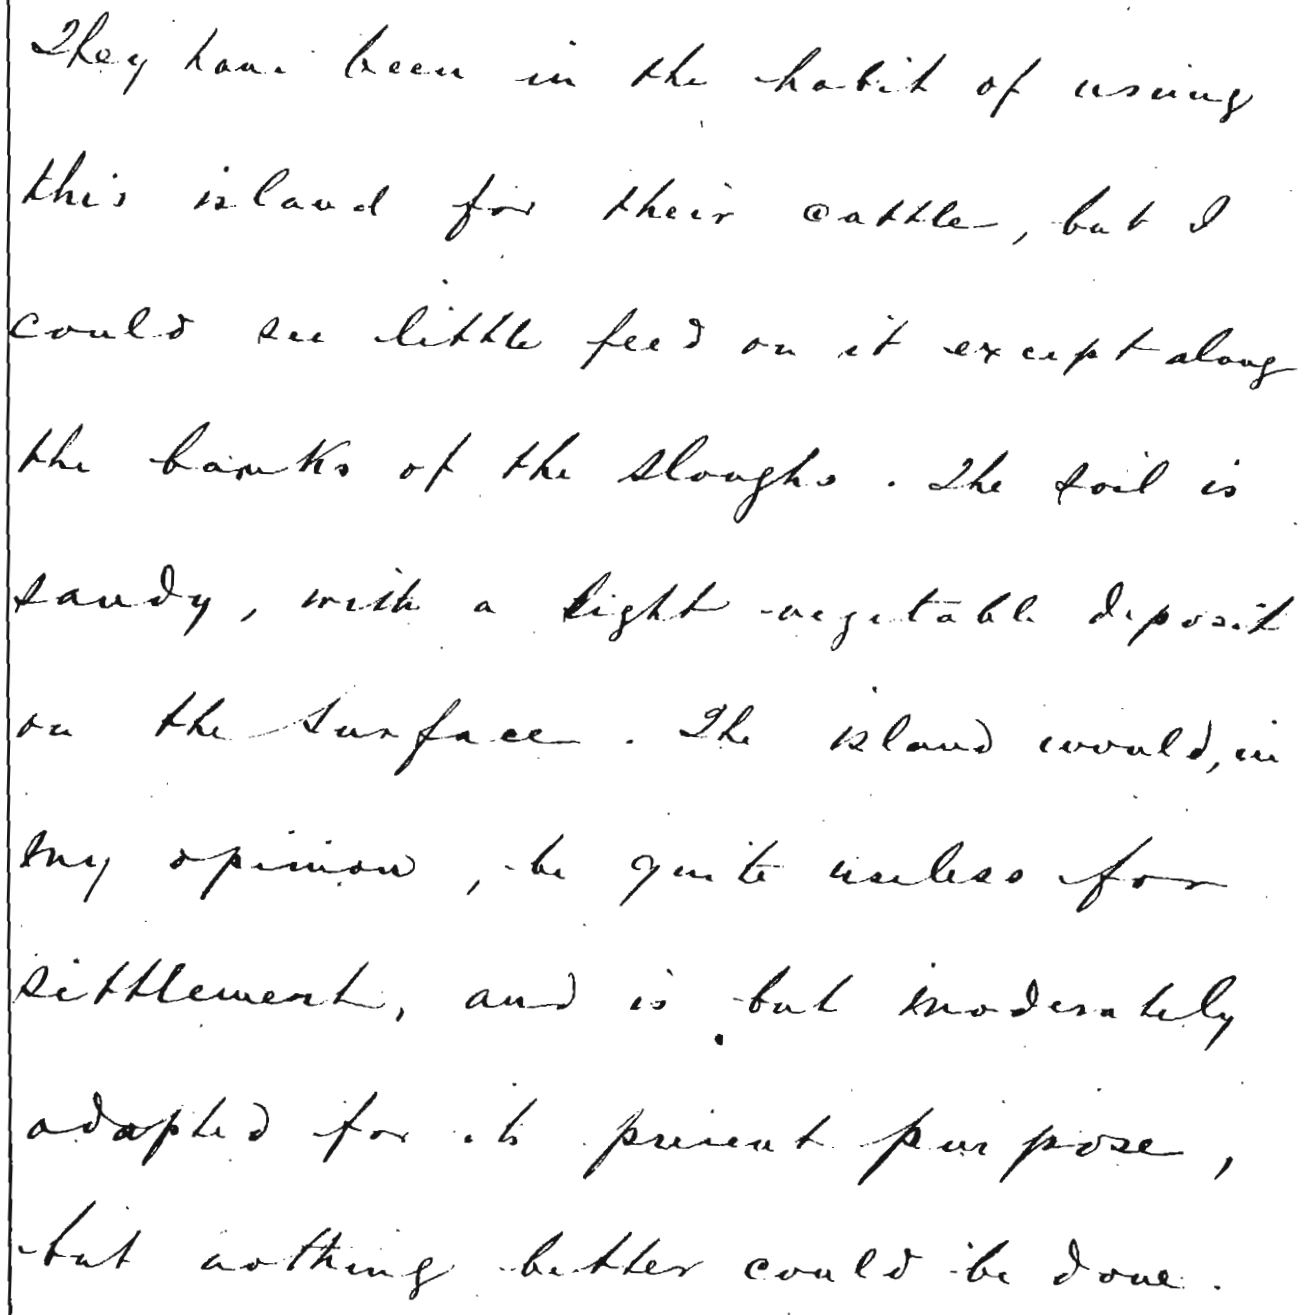 They have been in the habit of using
this island for their cattle, but I
could see little feed on it except along
the banks of the sloughs. The soil is
sandy, with a light vegetable deposit
on the surface. The island would, in
my opinion, be quite useless for
settlement, and is but moderately
adapted for its present purpose,
but nothing better could be done.